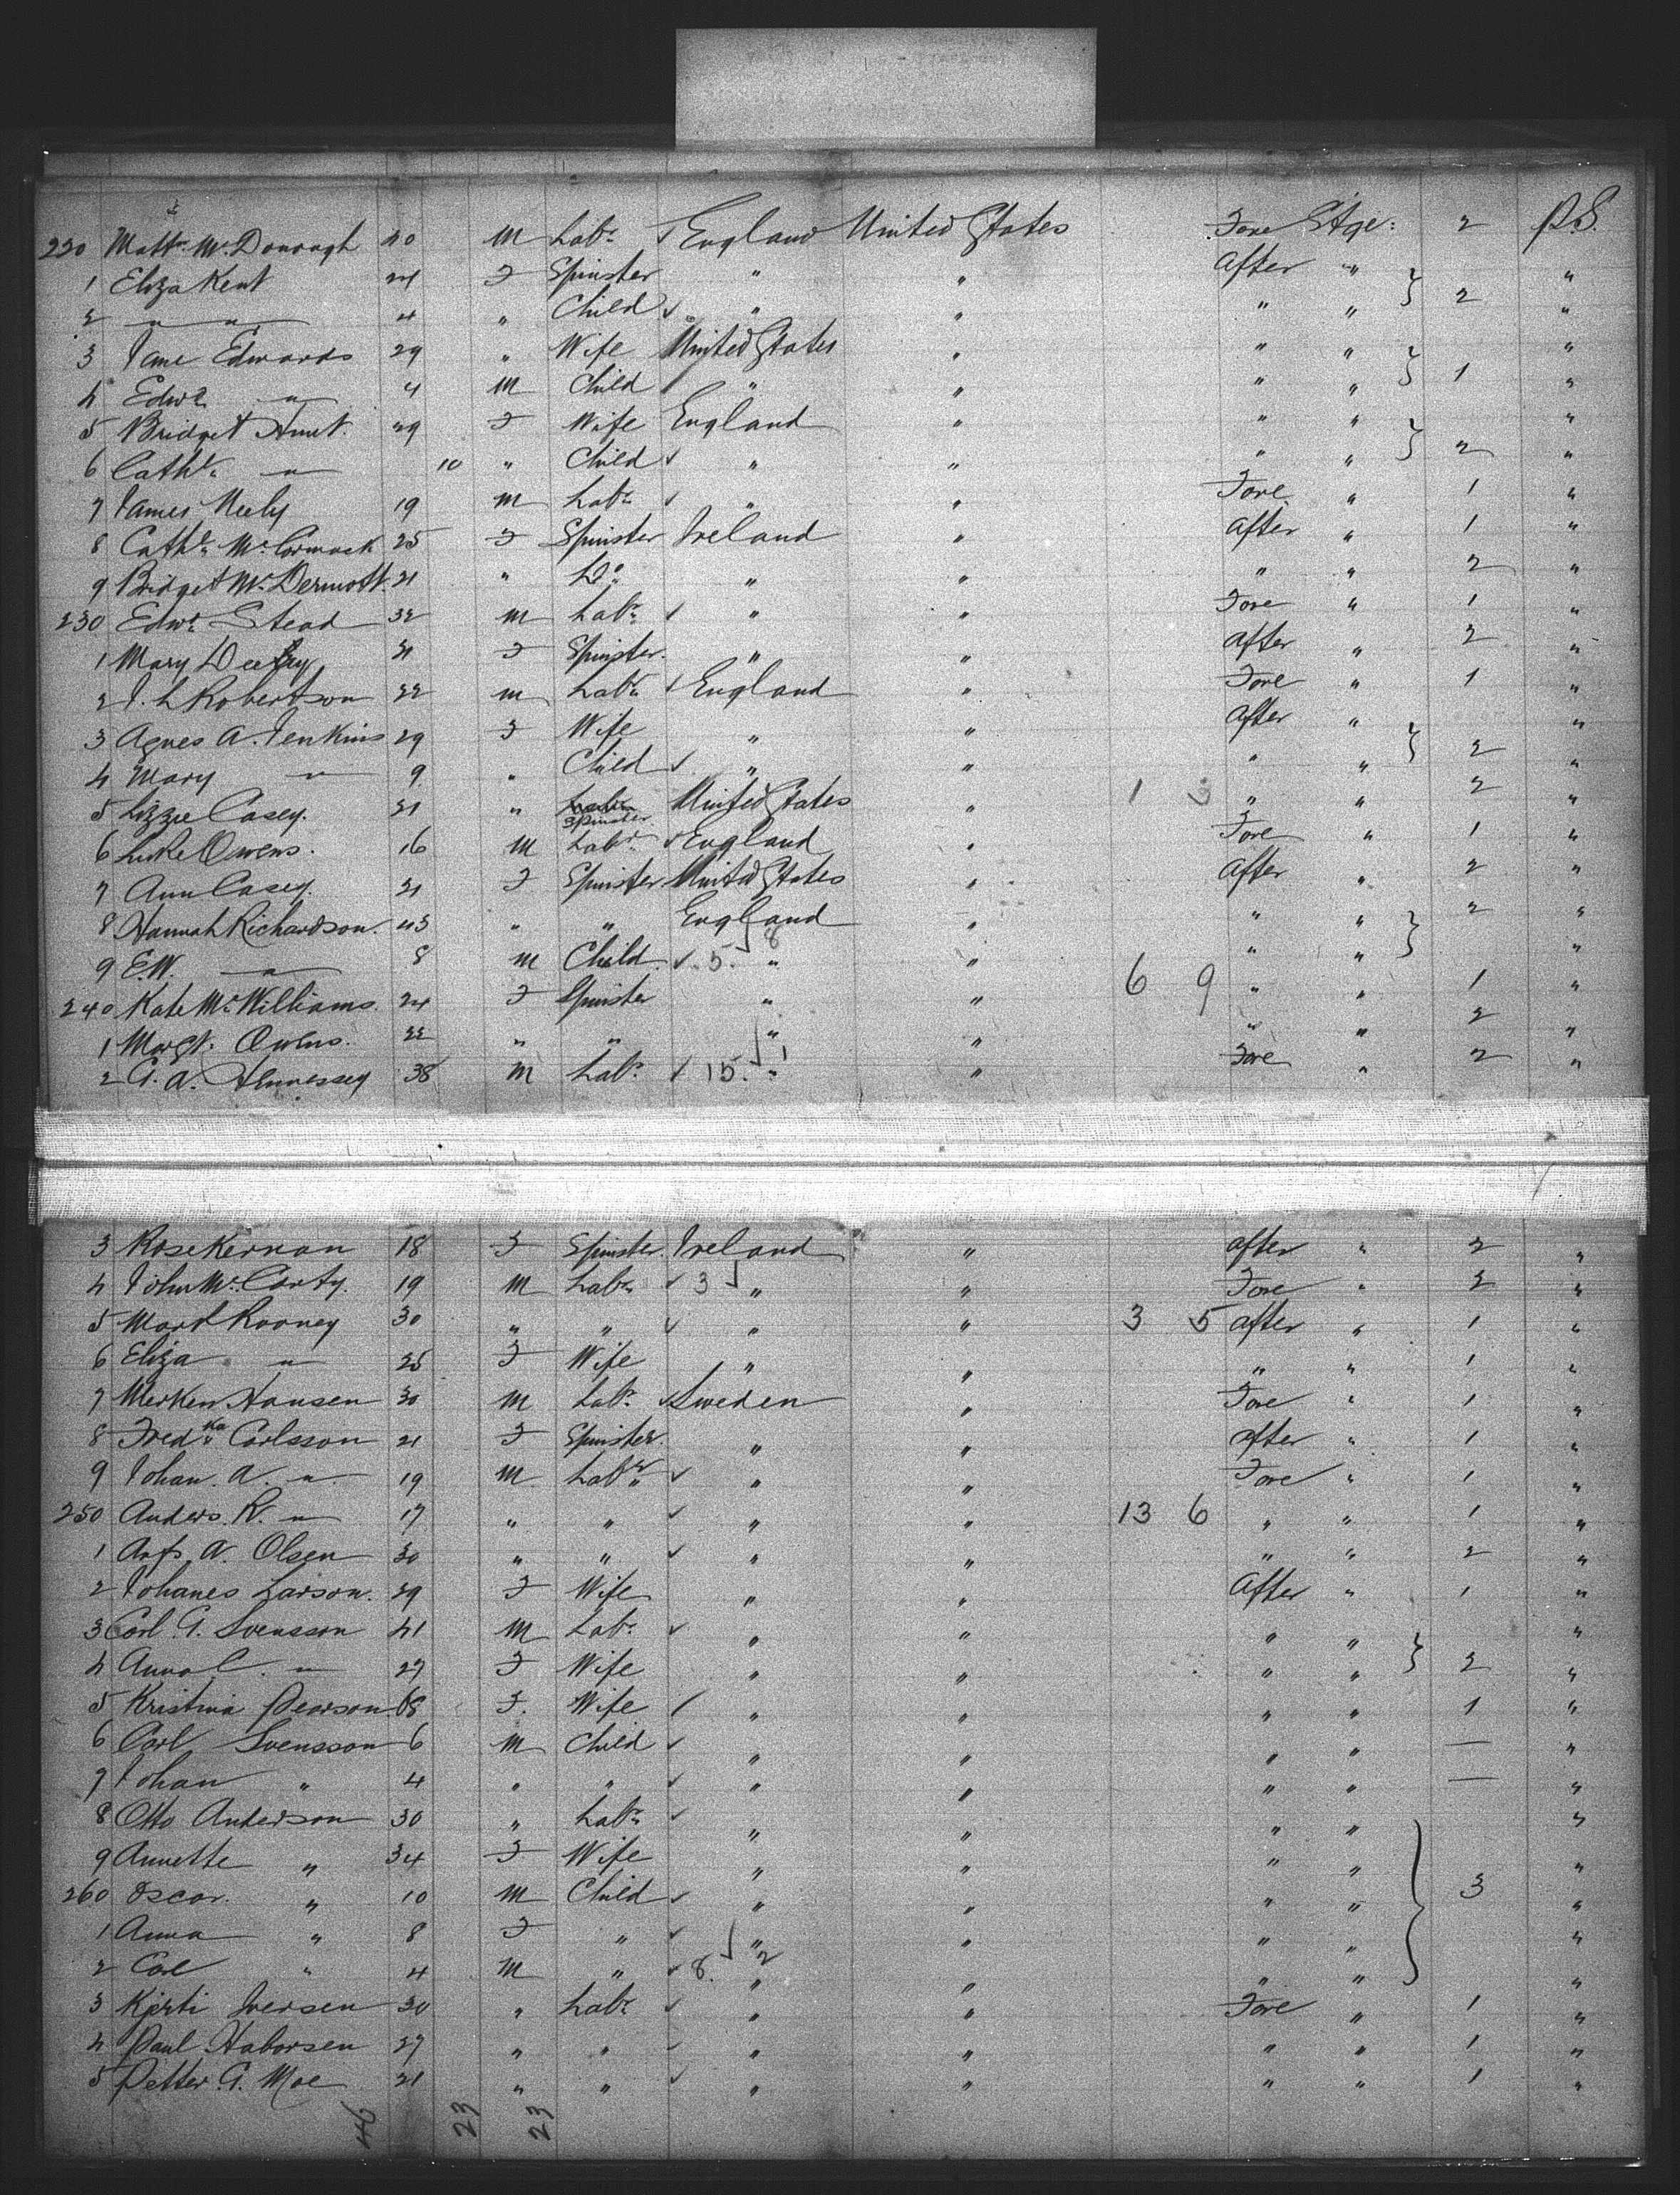 220 Mattw McDonough 40 M Labr ✓ England United States Fore Stge: 2 P.S.
1 Eliza Kent 24 F Spinster " " After " } "
2 " " 4 " Child ✓ " " " " } 2 "
3 Jane Edwards 29 " Wife United States " " " } "
4 Edwd " 4 M Child " " " " } 1 "
5 Bridget Hunt. 29 F Wife England " " " } "
6 Cathe " 10 " Child ✓ " " " " } 2 "
7 James Neely 19 M Labr ✓ " " Fore " 1 "
8 Cathe McCormack 25 F Spinster Ireland " After " 1 "
9 Bridget McDermott. 21 " Do " " " " 2 "
230 Edwd Stead 32 M Labr ✓ " " Fore " 1 "
1 Mary 21 F Spinster. " " After " 2 "
2 J. L Robertson 22 M Labr ✓ England " Fore " 1 "
3 Agnes A. Jenkins 29 F Wife " " After " } "
4 Mary " 9 " Child ✓ " " " " } 2 "
5 Lizzie Casey. 21 " Spinster United States " 1 " " 2 "
6 Luke Owens. 16 M Labr ✓ England " Fore " 1 "
7 Ann Casey. 21 F Spinster United States " After " 2 "
8 Hannah Richardson. 43 " " England " " " } 2 "
9 E.W. " 8 M Child. ✓ 5. 8 " " " " } "
240 Kate McWilliams. 24 F Spinster " " 6 9 " " 1 "
1 Margt. Owens. 22 " " " " " " 2 "
2 G. A. Hennessey 38 M Labr ✓ 15. 1 " " Fore " 2 "
3 Rose Kernan 18 F Spinster. Ireland " After " 2 "
4 John McCarty. 19 M Labr ✓ 3 " " Fore " 2 "
5 Mark Rooney 30 " " ✓ " " 3 5 After " 1 "
6 Eliza " 25 F Wife " " " " 1 "
7 Hansen 30 M Labr ✓ Sweden " Fore " 1 "
8 Fredka Carlsson 21 F Spinster. " " After " 1 "
9 Johan. A. " 19 M Labr ✓ " " Fore " 1 "
250 Anders. R. " 17 " " ✓ " " 13 6 " " 1 "
1 A. Olsen 30 " " ✓ " " " " 2 "
2 Johanes Larson. 29 F Wife " " After " 1 "
3 Carl G. Svensson 41 M Labr ✓ " " " " } "
4 Anna C. " 27 F Wife " " " " } 2 "
5 Kristina Pearson 68 F. Wife / " " " " 1 "
6 Carl Svensson 6 M Child ✓ " " " " — "
7 Johan " 4 " " ✓ " " " " — "
8 Otto Anderson 30 " Labr ✓ " " " " } "
9 Annette " 34 F Wife " " " " "
260 Oscar. " 10 M Child ✓ " " " " 3 "
1 Anna " 8 F " ✓ " " " " "
2 Carl " 4 M " ✓ 8. 2 " " " " "
3 Kjerti Iversen 30 " Labr ✓ " " Fore " 1 "
4 Paul Haborsen 27 " " ✓ " " " " 1 "
5 Petter. G. Moe 21 " " ✓ " " " " 1 "
46 23 23